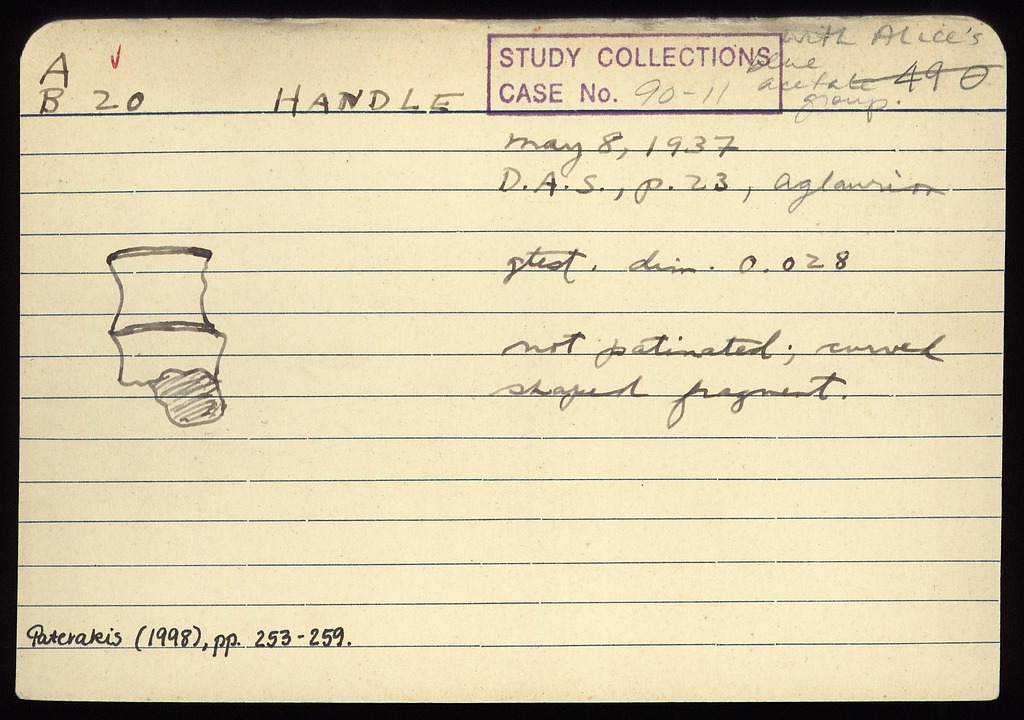 A ✓
B 20 HANDLE
STUDY COLLECTIONS
CASE No. 90-11
with Alice's
blue
acetate
group.
490
May 8, 1937
D.A.S., p. 23, Aglaurion
gtest. dim. 0.028
not patinated; curved
shaped fragment.
Paterakis (1998), pp. 253-259.